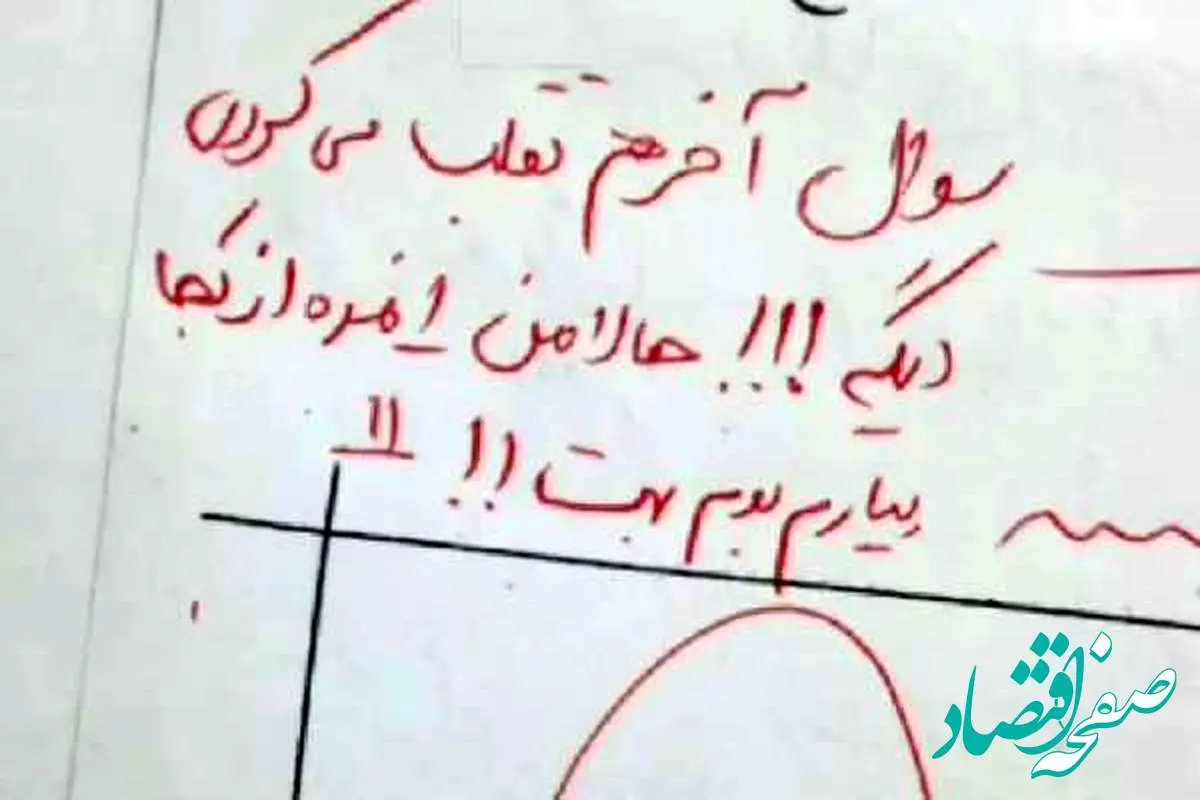 سوال آخر هم تقلب می کردی
دیگه !!! حالا من 1 نمره از کجا
بیارم بدم بهت !! 11
صفحه اقتصاد